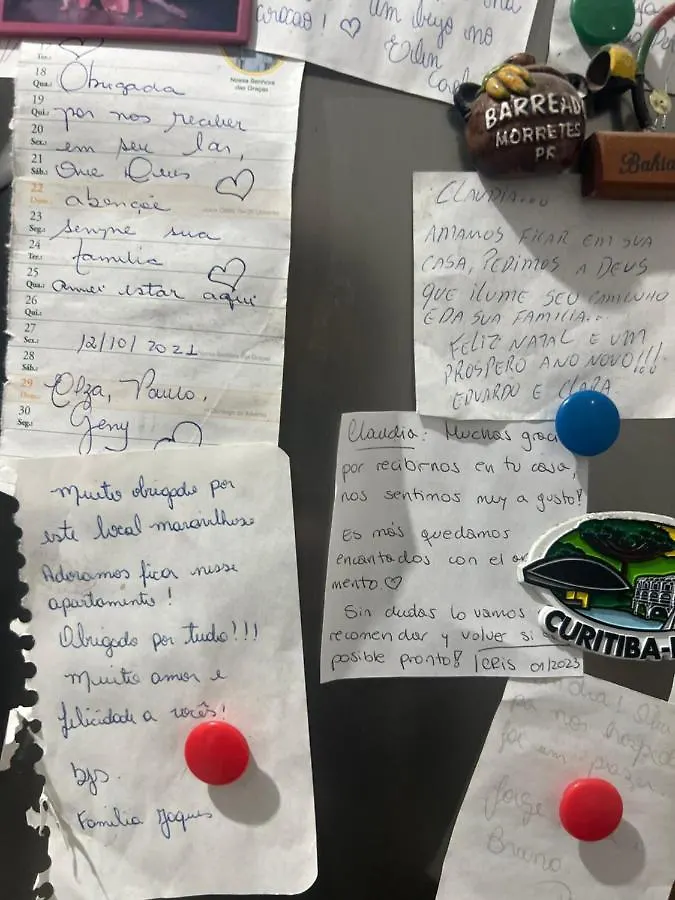 coração! ♡ um beijo no
18
Qua.:
19
Qui.:
20
Sex.:
21
Sáb.:
22
Dom.:
23
Seg.:
24
Ter.:
25
Qua.:
26
Qui.:
27
Sex.:
28
Sáb.:
29
Dom.:
30
Seg.:
Nossa Senhora
das Graças
Obrigada
por nos receber
em seu lar,
Que Deus ♡
abençoe
sempre sua
família ♡
amei estar aqui
12/10/2021
Elza, Paulo,
Geny ♡
BARREADO
MORRETES
PR
Bahia
CLAUDIA....
AMAMOS FICAR EM SUA
CASA, PEDIMOS A DEUS
QUE ILUME SEU CAMINHO
E DA SUA FAMILIA..
FELIZ NATAL E UM
PROSPERO ANO NOVO!!!
EDUARDO E CLARA.
Claudia: Muchas graci
por recibirnos en tu casa,
nos sentimos muy a gusto!
Es más quedamos
encantados con el
mento. ♡
Sin dudas lo vamos
recomendar y volver si
posible pronto! CRIS 01/2023
CURITIBA-
Muito obrigado por
este local maravilhoso
Adoramos fica nesse
apartamento!
Obrigado por tudo!!!
Muito amor e
felicidade a vocês!
bjs.
Família Jaques
por nos
foi um prazer
Jorge
Bruno